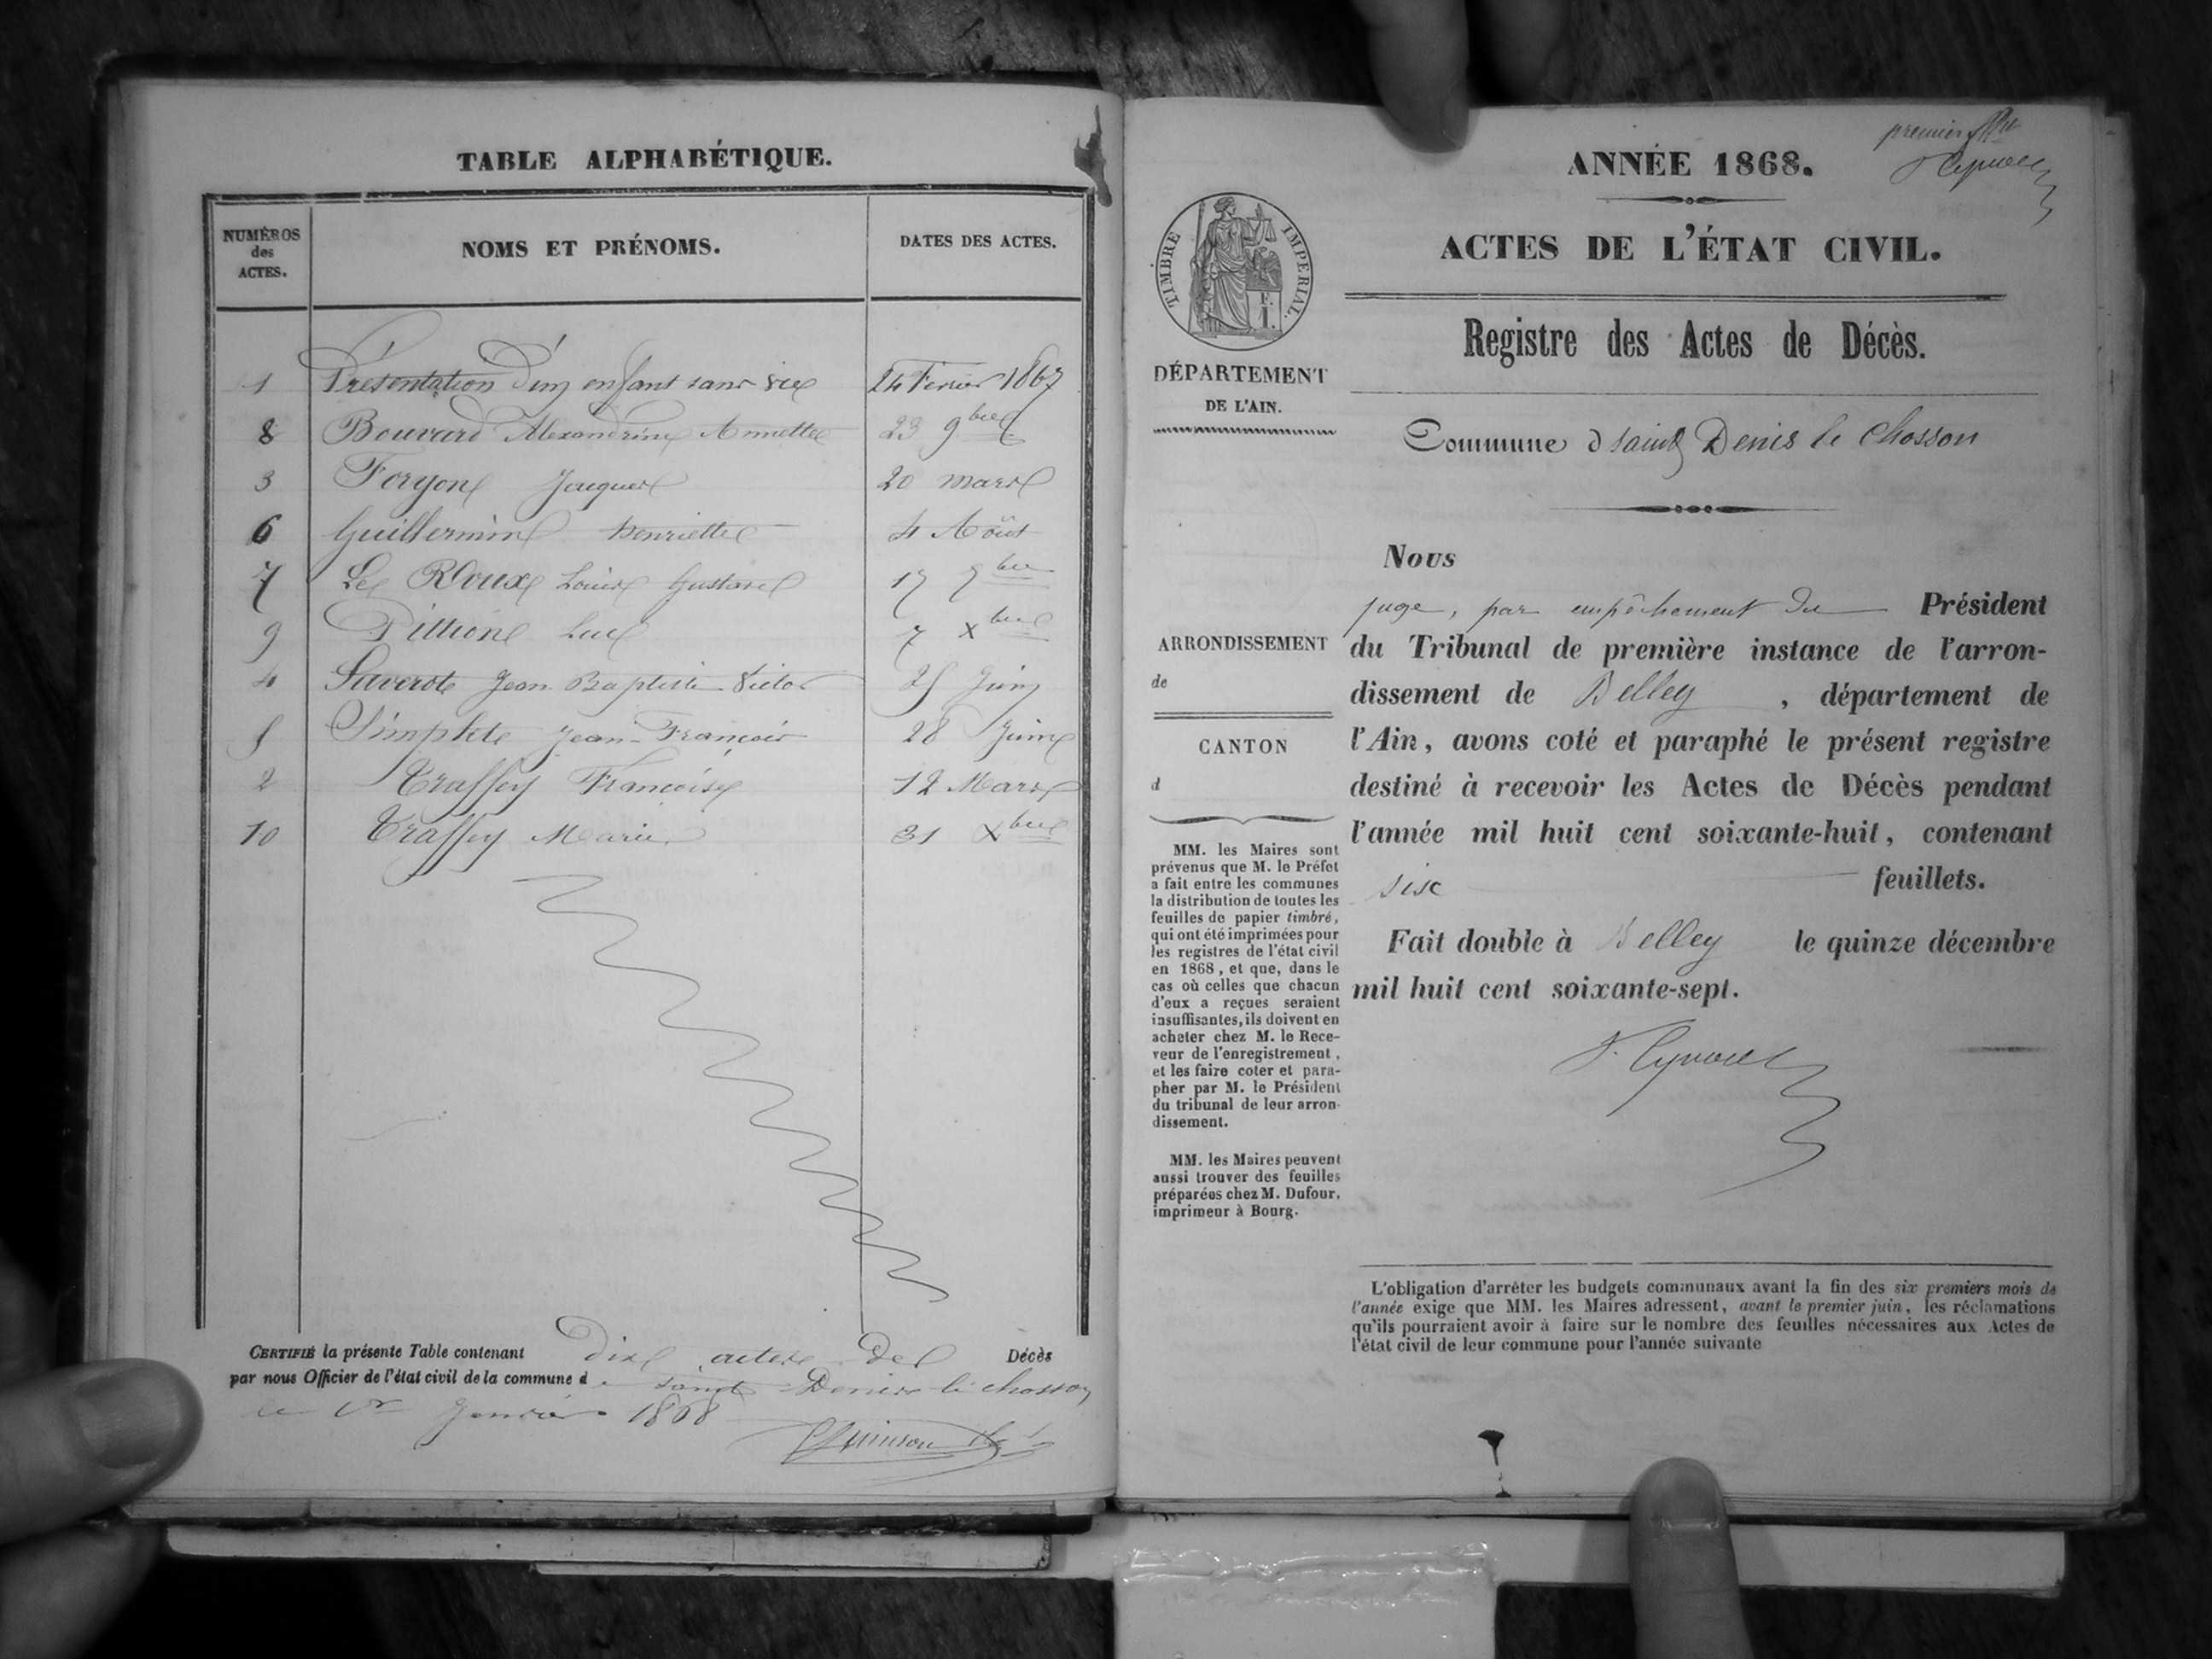 TABLE ALPHABÉTIQUE.
NUMÉROS des ACTES.
NOMS ET PRÉNOMS.
DATES DES ACTES.
1 Présentation d'un enfant sans vie 24 Fevrier 1867
8 Bouvard Alexandrine Annette 23 9bre
3 Foryon Jacques 20 mars
6 Guillermin henriette 4 Août
7 Le Roux Louis Gustave 17 7bre
9 Pittion Luc 7 Xbre
4 Saverot Jean Baptiste Victor 25 Juin
5 Simplet Jean-François 28 Juin
2 Traffey Françoise 12 Mars
10 Traffey Marie 31 Xbre
CERTIFIÉ la présente Table contenant Dix actes de Décès
par nous Officier de l'état civil de la commune de saint Denis le chosson
le 1er Janvier 1868
premier
ANNÉE 1868.
TIMBRE IMPERIAL.
E. I.
ACTES DE L'ÉTAT CIVIL.
Registre des Actes de Décès.
DÉPARTEMENT
DE L'AIN.
Commune d saint Denis le Chosson
ARRONDISSEMENT
de
CANTON
d
MM. les Maires sont
prévenus que M. le Préfet
a fait entre les communes
la distribution de toutes les
feuilles de papier timbré,
qui ont été imprimées pour
les registres de l'état civil
en 1868, et que, dans le
cas où celles que chacun
d'eux a reçues seraient
insuffisantes, ils doivent en
acheter chez M. le Rece-
veur de l'enregistrement,
et les faire coter et para-
pher par M. le Président
du tribunal de leur arron-
dissement.
MM. les Maires peuvent
aussi trouver des feuilles
préparées chez M. Dufour,
imprimeur à Bourg.
Nous
juge, par empêchement du Président
du Tribunal de première instance de l'arron-
dissement de Belley, département de
l'Ain, avons coté et paraphé le présent registre
destiné à recevoir les Actes de Décès pendant
l'année mil huit cent soixante-huit, contenant
six feuillets.
Fait double à Belley le quinze décembre
mil huit cent soixante-sept.
L'obligation d'arrêter les budgets communaux avant la fin des six premiers mois de
l'année exige que MM. les Maires adressent, avant le premier juin, les réclamations
qu'ils pourraient avoir à faire sur le nombre des feuilles nécessaires aux Actes de
l'état civil de leur commune pour l'année suivante